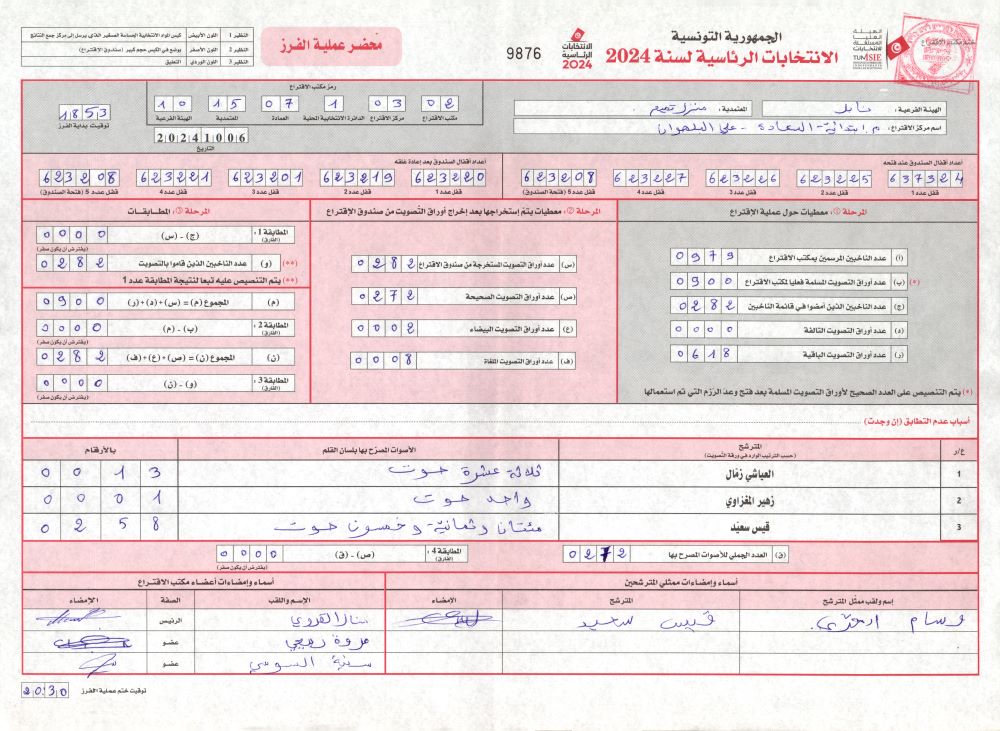 النظير 1 اللون الأبيض كيس المواد الانتخابية الحساسة الصغير الذي يرسل إلى مركز جمع النتائج
النظير 2 اللون الأصفر يوضع في الكيس حجم كبير (صندوق الاقتراع)
النظير 3 اللون الوردي التعليق
محضر عملية الفرز
9876
الانتخابات الرئاسية 2024
الجمهورية التونسية
الانتخابات الرئاسية لسنة 2024
الهيئة العليا المستقلة للانتخابات
TUNISIE
ختم مكتب الاقتراع
الهيئة الفرعية: نابل المعتمدية: منزل تميم
اسم مركز الاقتراع: م ابتدائية السعادة - علي البلهوان
رمز مكتب الاقتراع
02 03 1 07 15 10
مكتب الاقتراع مركز الاقتراع الدائرة الانتخابية المحلية العمادة المعتمدية الهيئة الفرعية
20241006
التاريخ
1853
توقيت بداية الفرز
أعداد أقفال الصندوق عند فتحه
637324 623225 623226 623227 623208
قفل عدد 1 قفل عدد 2 قفل عدد 3 قفل عدد 4 قفل عدد 5 (فتحة الصندوق)
أعداد أقفال الصندوق بعد إعادة غلقه
623220 623219 623201 623221 623208
قفل عدد 1 قفل عدد 2 قفل عدد 3 قفل عدد 4 قفل عدد 5 (فتحة الصندوق)
المرحلة ①: معطيات حول عملية الإقتراع
(أ) عدد الناخبين المرسمين بمكتب الاقتراع 0979
(*) (ب) عدد أوراق التصويت المسلمة فعليا لمكتب الاقتراع 0900
(ج) عدد الناخبين الذين أمضوا في قائمة الناخبين 0282
(د) عدد أوراق التصويت التالفة 0000
(ر) عدد أوراق التصويت الباقية 0618
(*) يتم التنصيص على العدد الصحيح لأوراق التصويت المسلمة بعد فتح وعد الرزم التي تم استعمالها
المرحلة ②: معطيات يتم إستخراجها بعد إخراج أوراق التصويت من صندوق الإقتراع
(س) عدد أوراق التصويت المستخرجة من صندوق الاقتراع 0282
(ص) عدد أوراق التصويت الصحيحة 0272
(ع) عدد أوراق التصويت البيضاء 0002
(ف) عدد أوراق التصويت الملغاة 0008
المرحلة ③: المطابقات
المطابقة 1: (الفارق) (ج) - (س) 0000
(يفترض أن يكون صفر)
(**) (و) عدد الناخبين الذين قاموا بالتصويت 0282
(**) يتم التنصيص عليه تبعا لنتيجة المطابقة عدد 1
(م) المجموع (م) = (س) + (د) + (ر) 0900
المطابقة 2: (الفارق) (ب) - (م) 0000
(ن) المجموع (ن) = (ص) + (ع) + (ف) 0282
المطابقة 3: (الفارق) (و) - (ن) 0000
(يفترض أن يكون صفر)
أسباب عدم التطابق (إن وجدت)
ع/ر المترشح (حسب الترتيب الوارد في ورقة التصويت) الأصوات المصرح بها بلسان القلم بالأرقام
1 العياشي زمّال ثلاثة عشرة صوت 0013
2 زهير المغزاوي واحد صوت 0001
3 قيس سعيّد مئتان وثمانية وخمسون صوت 0258
(ق) العدد الجملي للأصوات المصرح بها 0272
المطابقة 4: (الفارق) (ص) - (ق) 0000
(يفترض أن يكون صفر)
أسماء وإمضاءات ممثلي المترشحين
إسم ولقب ممثل المترشح المترشح الامضاء
وسام قيس سعيد
أسماء وإمضاءات أعضاء مكتب الاقتراع
الإسم واللقب الصفة الإمضاء
الرئيس
مروة عضو
سنية السويسي عضو
توقيت ختم عملية الفرز 2030